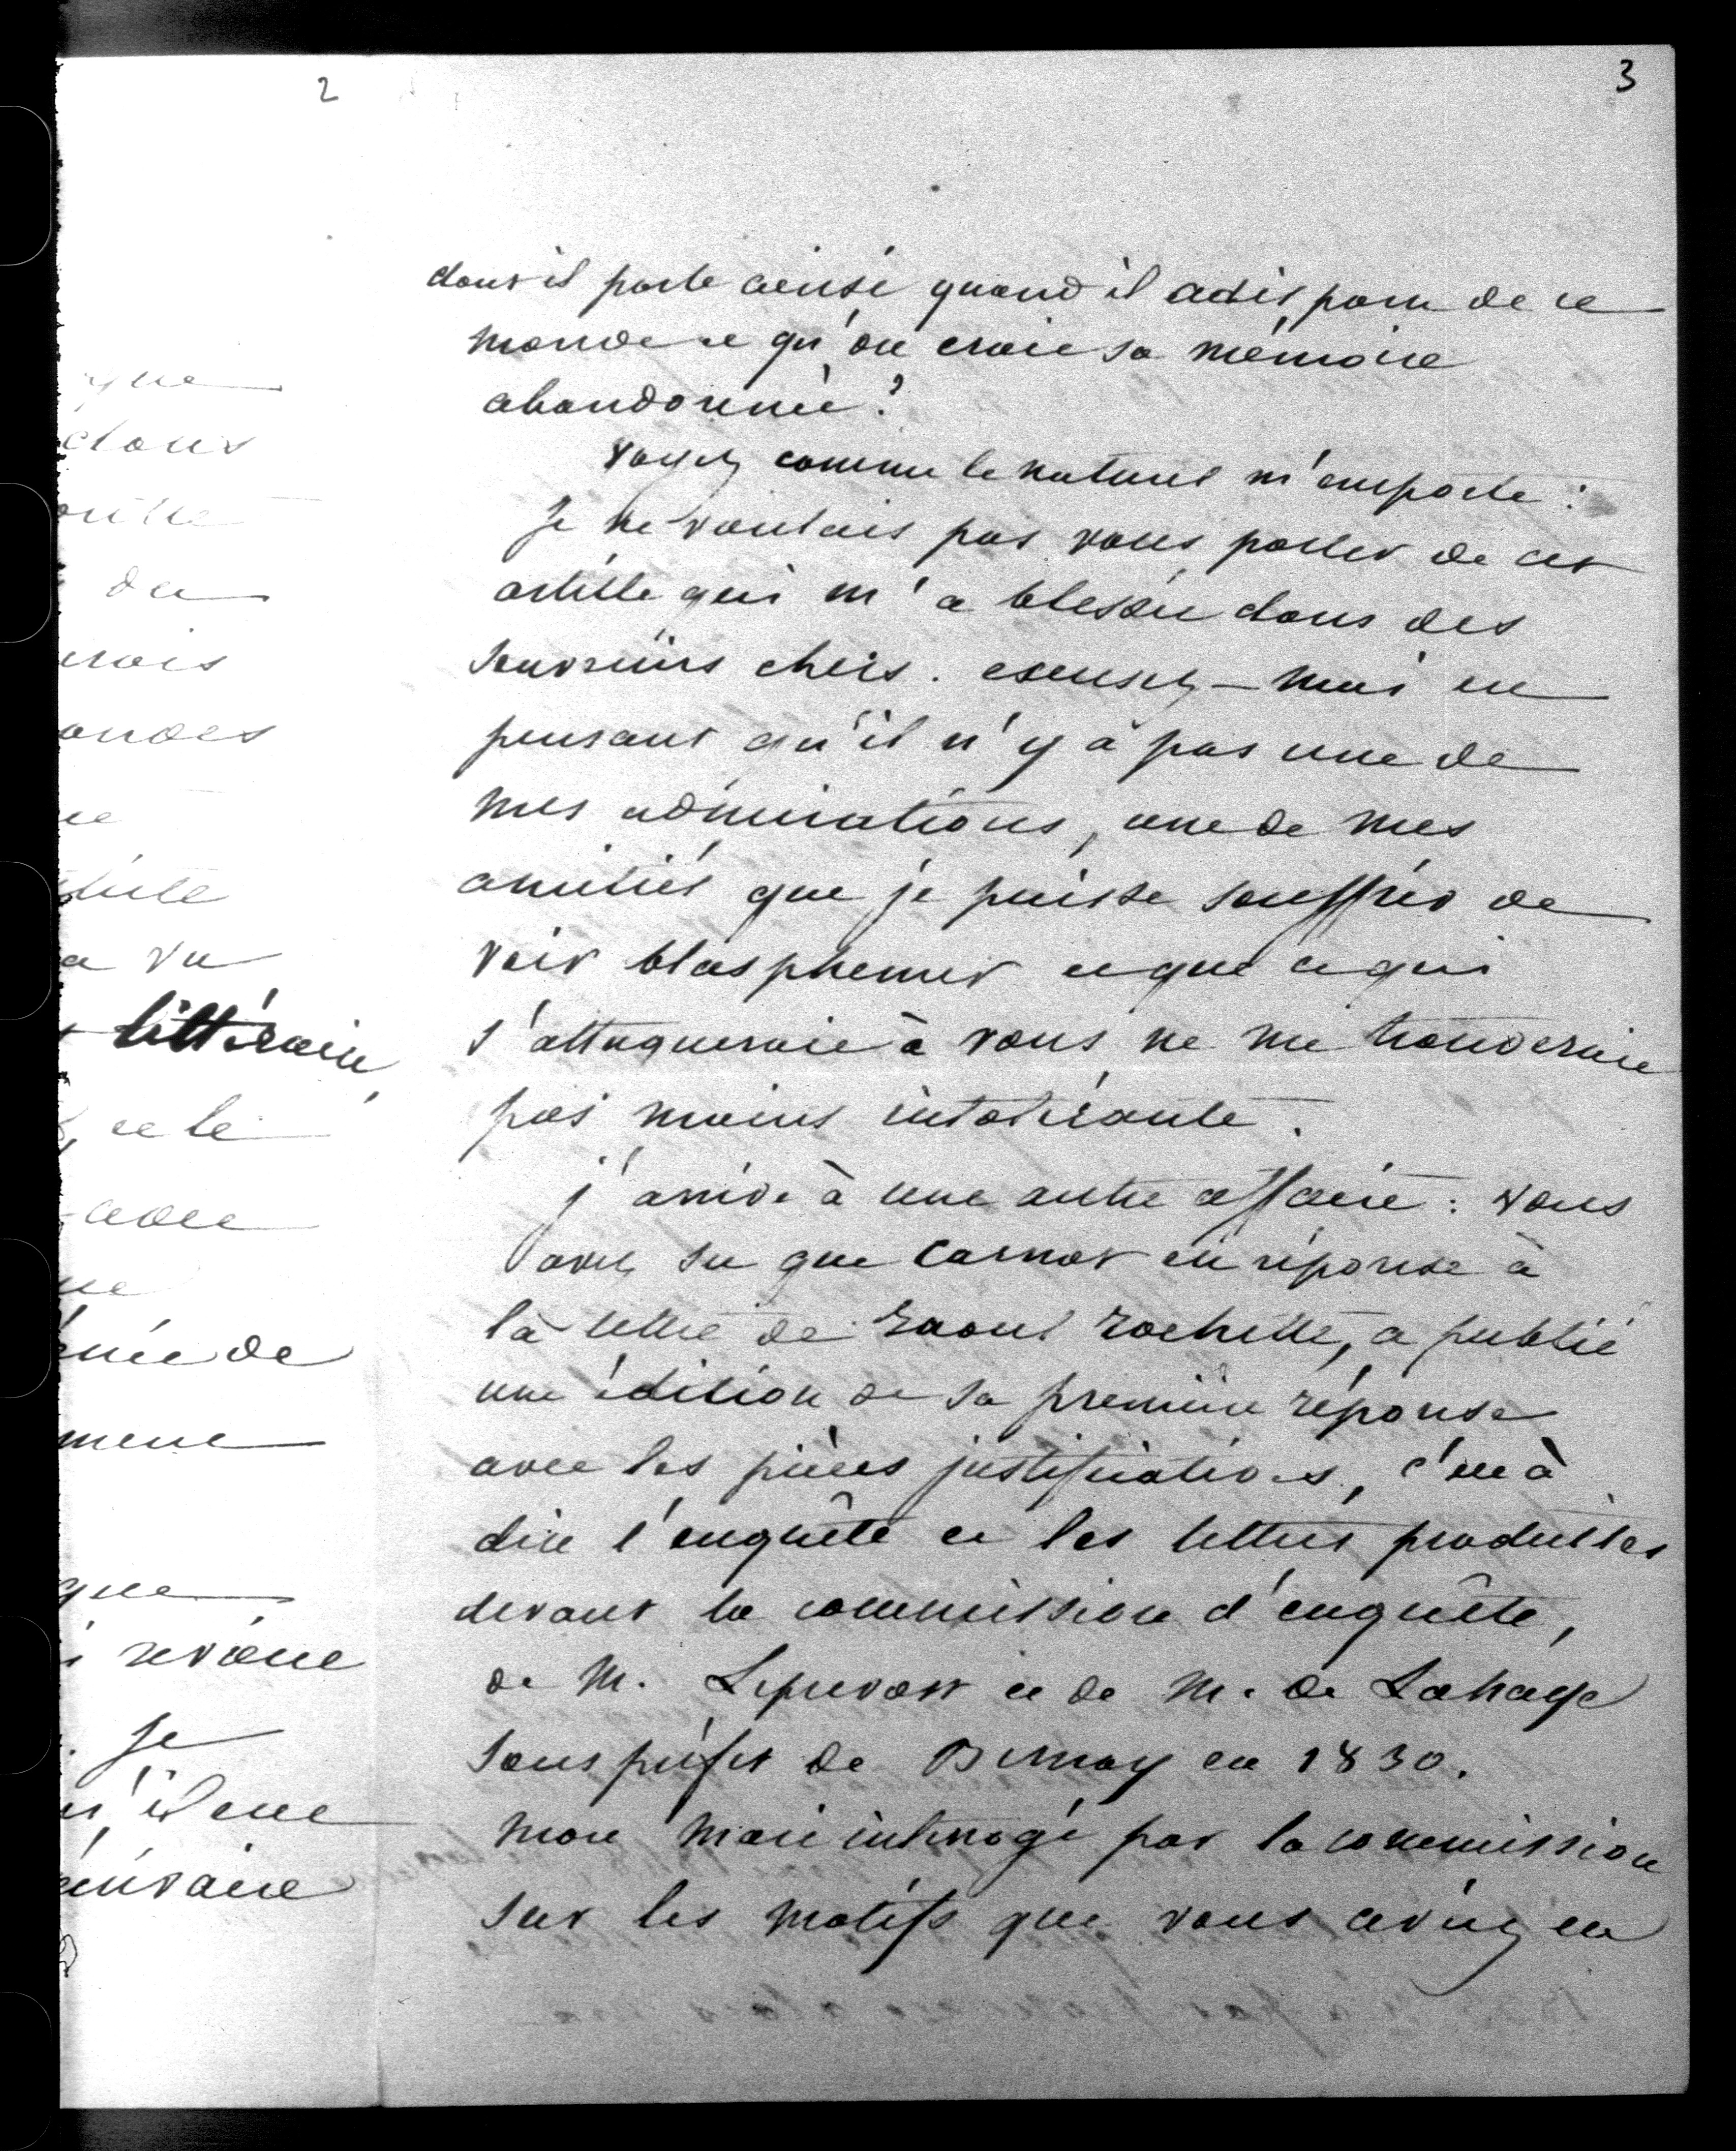 2
que
dans
du
vrais
a vu
littéraire,
et le
avec
ue
de
mene
que
revoue
. Je
3
dont il parle ainsi quand il a disparu de ce
monde et qu'on croit sa mémoire
abandonnée ?
Voyez comme le naturel m'emporte :
Je ne voulais pas vous parler de cet
article qui m'a blessée dans des
souvenirs chers. excusez-moi en
pensant qu'il n'y a pas une de
mes admirations, une de mes
amitiés que je puisse souffrir de
voir blasphemer et que ce qui
s'attaquerait à vous ne me trouverait
pas moins intolérante.
j'arrive à une autre affaire : vous
avez su que Carnot en réponse à
la lettre de Raoul Rochette, a publié
une édition de sa première réponse
avec les pièces justificatives, c'est à
dire l'enquête et les lettres produites
devant la commission d'enquête,
de M. Leprevost et de M. de Lahaye
sous préfet de Bernay en 1830.
Mon mari interrogé par la commission
sur les motifs que vous aviez eu